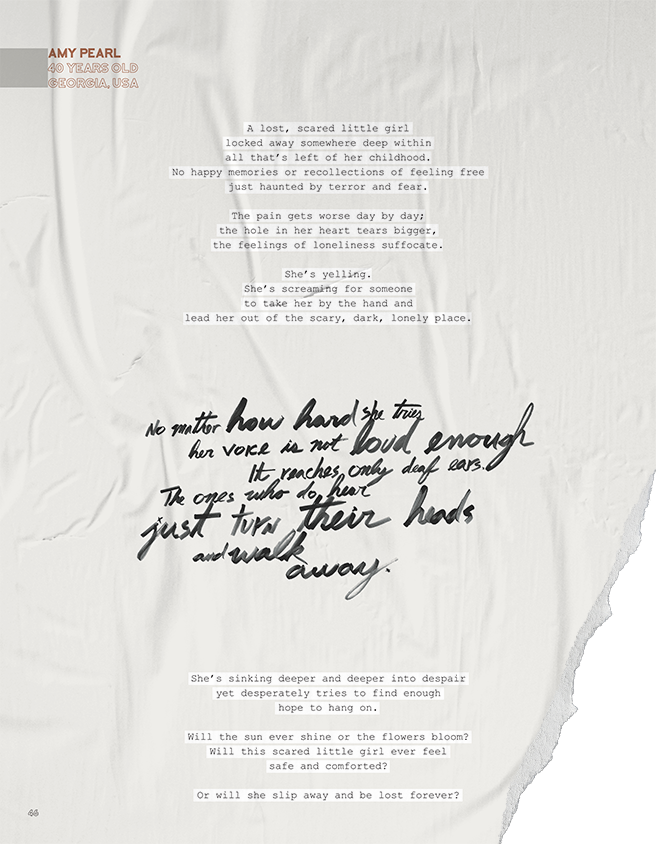 AMY PEARL
40 YEARS OLD
GEORGIA, USA
A lost, scared little girl
locked away somewhere deep within
all that's left of her childhood.
No happy memories or recollections of feeling free
just haunted by terror and fear.
The pain gets worse day by day;
the hole in her heart tears bigger,
the feelings of loneliness suffocate.
She's yelling.
She's screaming for someone
to take her by the hand and
lead her out of the scary, dark, lonely place.
No matter how hard she tries
her voice is not loud enough
It reaches only deaf ears.
The ones who do hear
just turn their heads
and walk
away.
She's sinking deeper and deeper into despair
yet desperately tries to find enough
hope to hang on.
Will the sun ever shine or the flowers bloom?
Will this scared little girl ever feel
safe and comforted?
Or will she slip away and be lost forever?